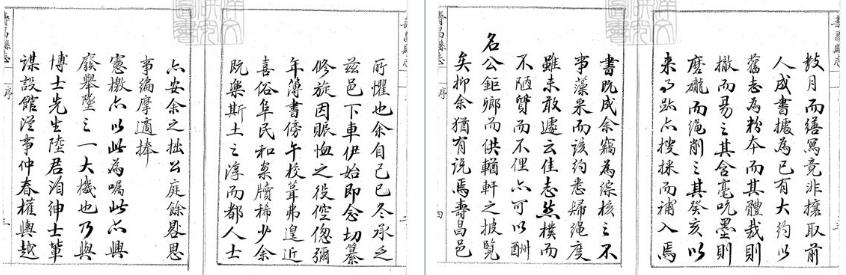 所懼也余自己巳冬承乏
茲邑下車伊始即念切纂
修旋因賑恤之役倥傯彌
年簿書傍午校葺弗遑近
喜俗阜民和案牘稀少余
既樂斯土之淳而都人士
亦安余之拙公庭餘晷思
事編摩適捧
憲檄亦以此為囑此亦興
廢舉墜之一大機也乃與
博士先生陸君洎紳士輩
謀設館從事仲春權輿越
壽昌縣志
序
數月而繕寫竟非攘取前
人成書據為己有大約以
舊志為粉本而其體裁則
撤而易之其含毫吮墨則
磨礱而繩削之其癸亥以
來事跡亦搜採而補入焉
書既成余竊為綜核之不
事藻采而該約悉歸繩度
雖未敢遽云佳志然樸而
不陋質而不俚亦可以酬
名公鉅卿而供輶軒之披覽
矣抑余猶有說焉壽昌邑
壽昌縣志
序
四